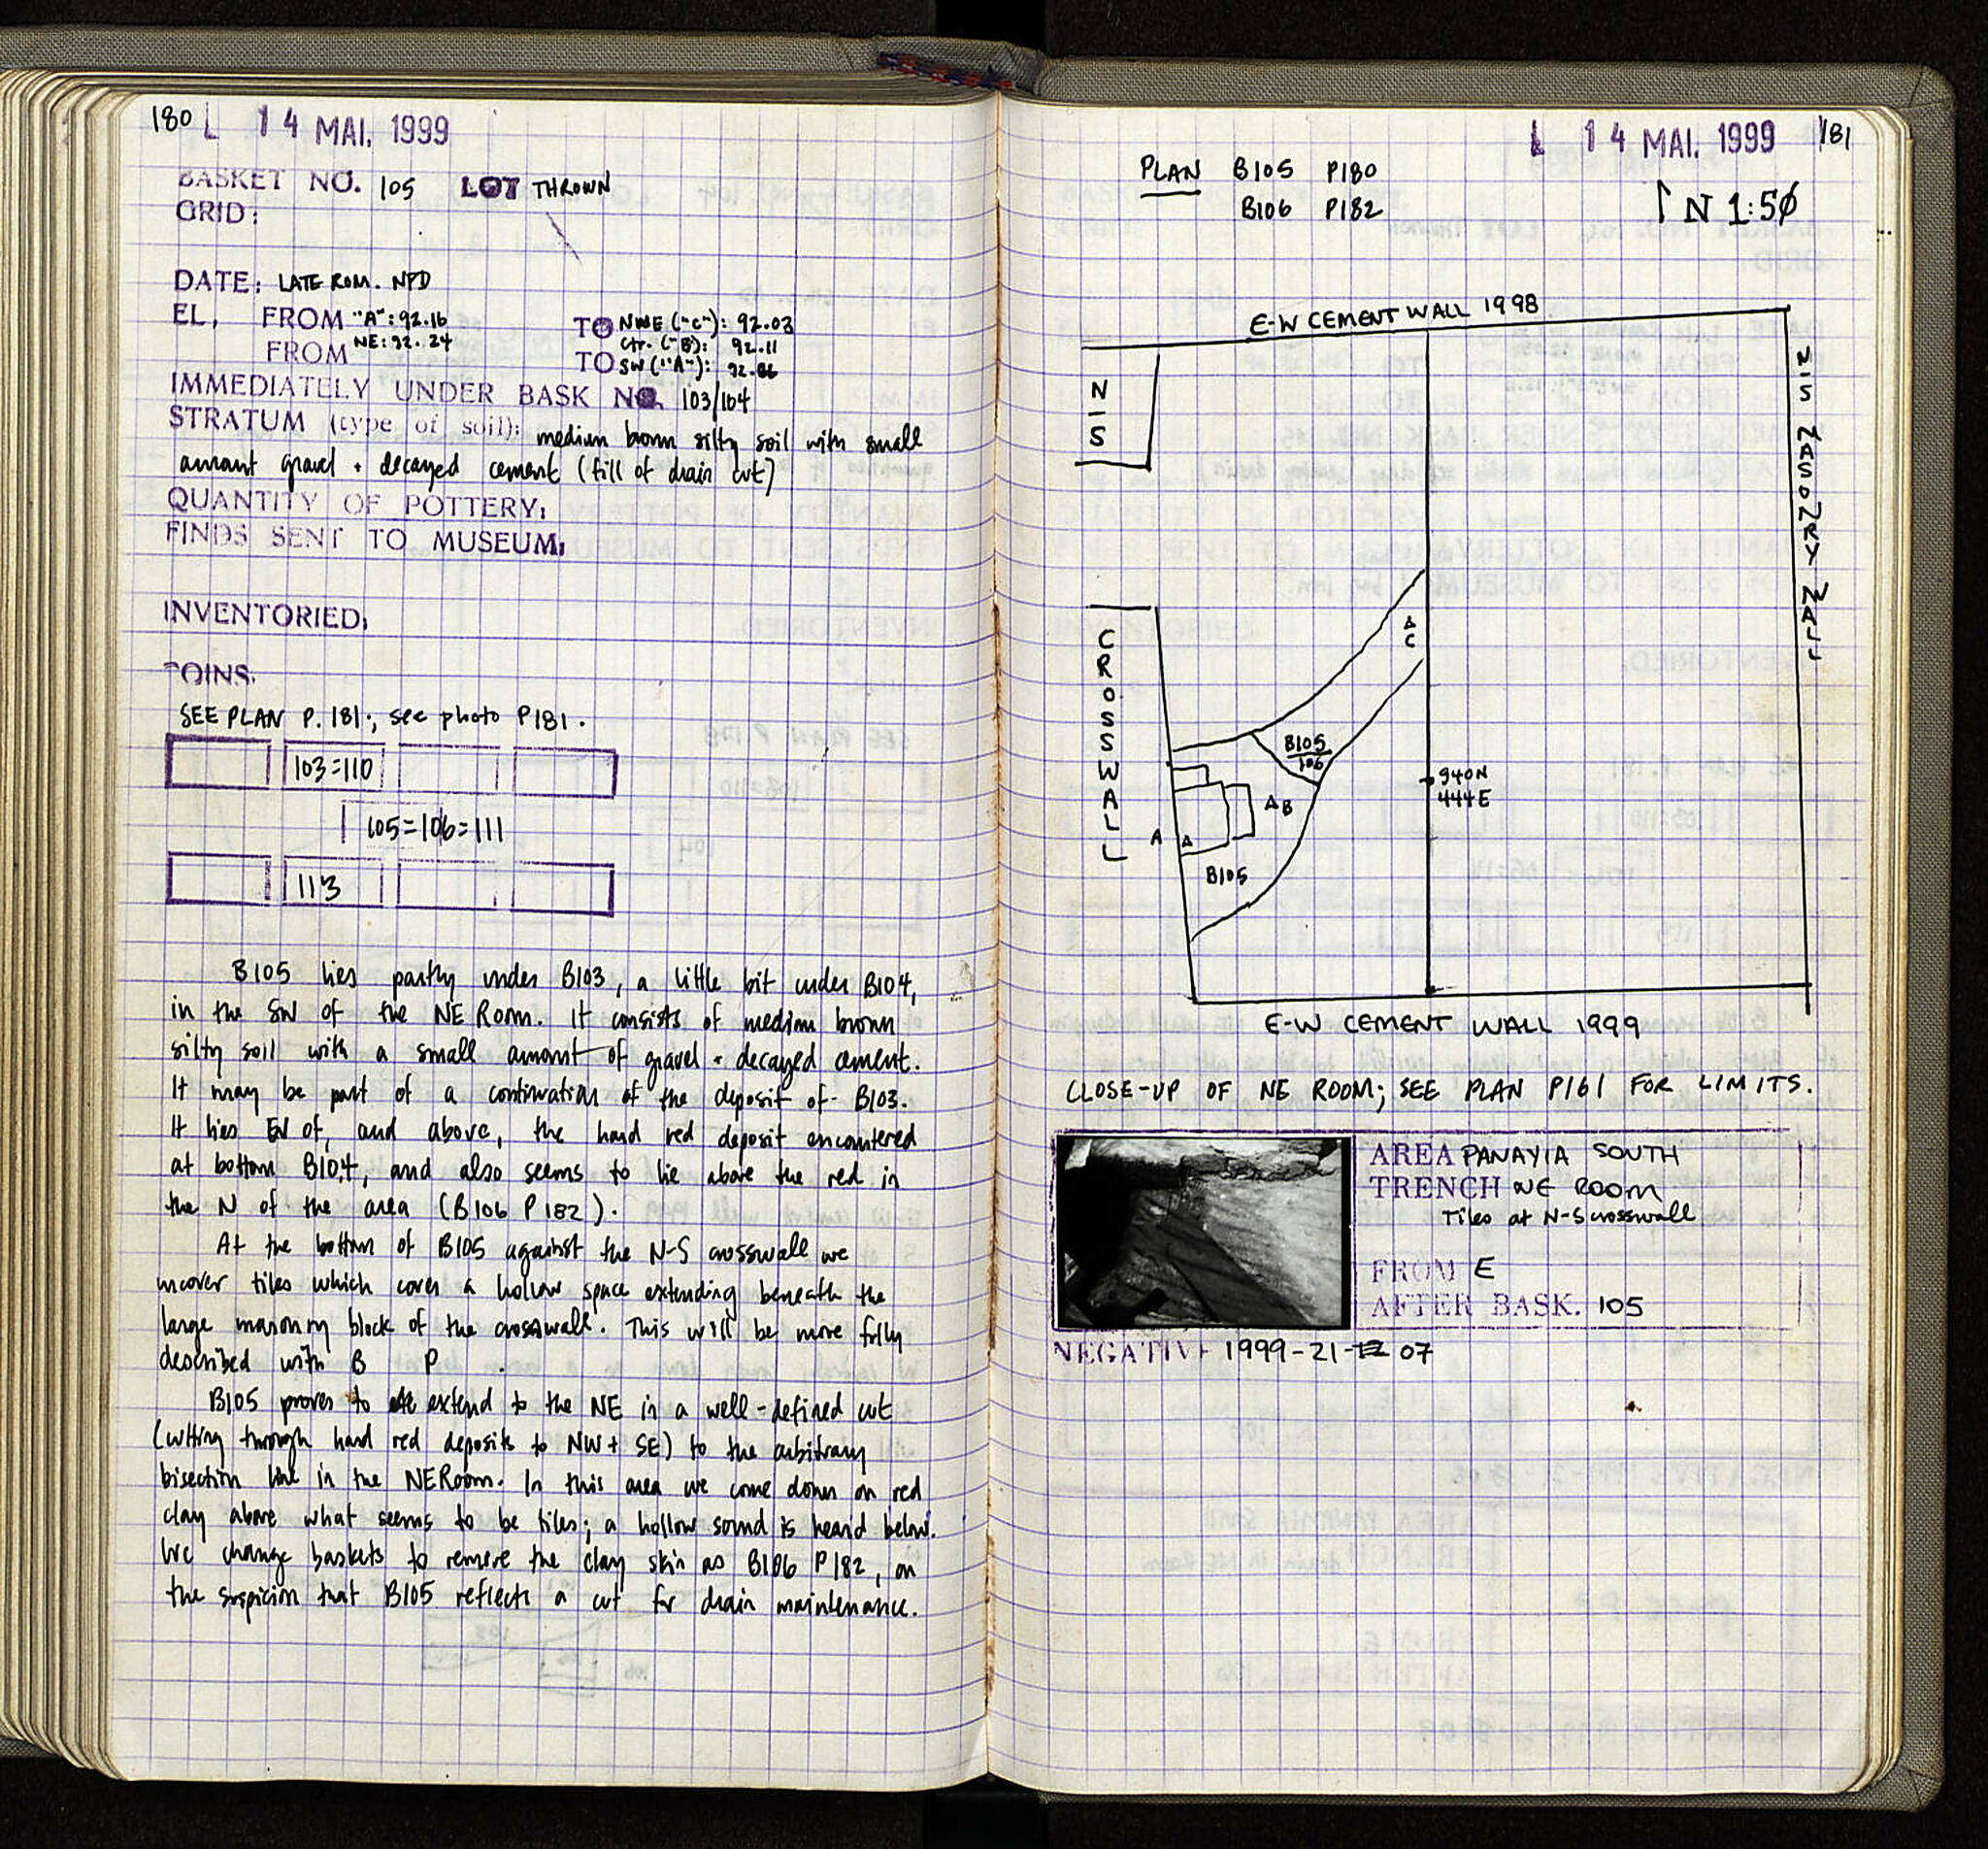 180 L 14 MAI. 1999
BASKET NO. 105 LOT THROWN
GRID:
DATE: LATE ROM. NPD
EL. FROM "A": 92.16 TO NWE ("C"): 92.03
FROM NE: 92.24 Ctr. ("B"): 92.11
TO SW ("A"): 92.
IMMEDIATELY UNDER BASK NO. 103/104
STRATUM (type of soil): medium brown silty soil with small
amount gravel + decayed cement (fill of drain cut)
QUANTITY OF POTTERY:
FINDS SENT TO MUSEUM:
INVENTORIED:
COINS.
SEE PLAN P. 181; see photo P181.
103=110
105=106=111
113
B105 lies partly under B103, a little bit under B104,
in the SW of the NE Room. It consists of medium brown
silty soil with a small amount of gravel + decayed cement.
It may be part of a continuation of the deposit of B103.
It lies of, and above, the hard red deposit encountered
at bottom B104, and also seems to lie above the red in
the N of the area (B106 P182).
At the bottom of B105 against the N-S crosswall we
uncover tiles which cover a hollow space extending beneath the
large masonry block of the crosswall. This will be more fully
described with B P .
B105 proves to extend to the NE in a well-defined cut
(cutting through hard red deposits to NW + SE) to the arbitrary
bisection line in the NE Room. In this area we come down on red
clay above what seems to be tiles; a hollow sound is heard below.
We change baskets to remove the clay skin as B106 P182, on
the suspicion that B105 reflects a cut for drain maintenance.
L 14 MAI. 1999 181
PLAN B105 P180
B106 P182
N 1:50
E-W CEMENT WALL 1998
N-S
N-S MASONRY WALL
CROSSWALL
C
B105
106
940N
444E
B
A
B105
E-W CEMENT WALL 1999
CLOSE-UP OF NE ROOM; SEE PLAN P161 FOR LIMITS.
AREA PANAYIA SOUTH
TRENCH NE ROOM
Tiles at N-S crosswall
FROM E
AFTER BASK. 105
NEGATIVE 1999-21- 07